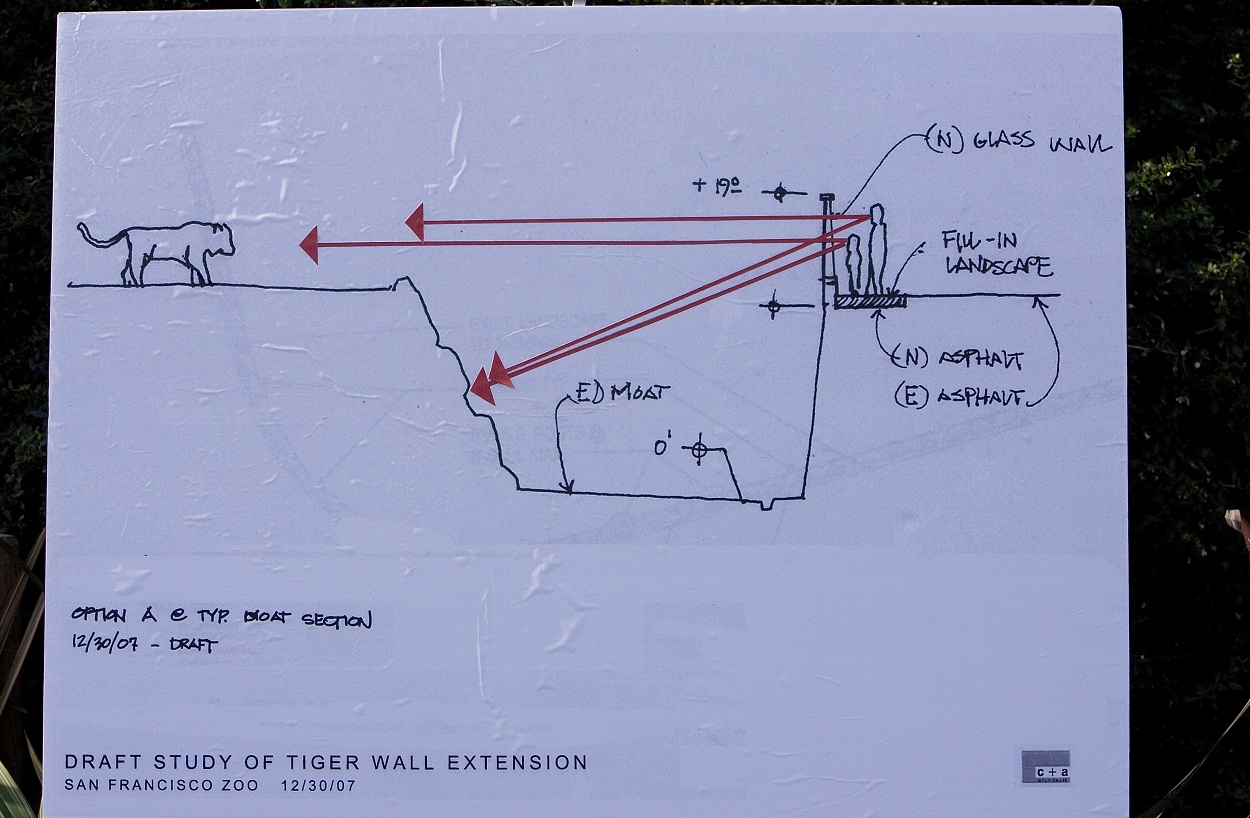 (N) GLASS WALL
+ 19º
FILL-IN
LANDSCAPE
(N) ASPHALT
(E) ASPHALT
E) MOAT
0'
OPTION A @ TYP. MOAT SECTION
12/30/07 - DRAFT
DRAFT STUDY OF TIGER WALL EXTENSION
SAN FRANCISCO ZOO 12/30/07
c+a
architects